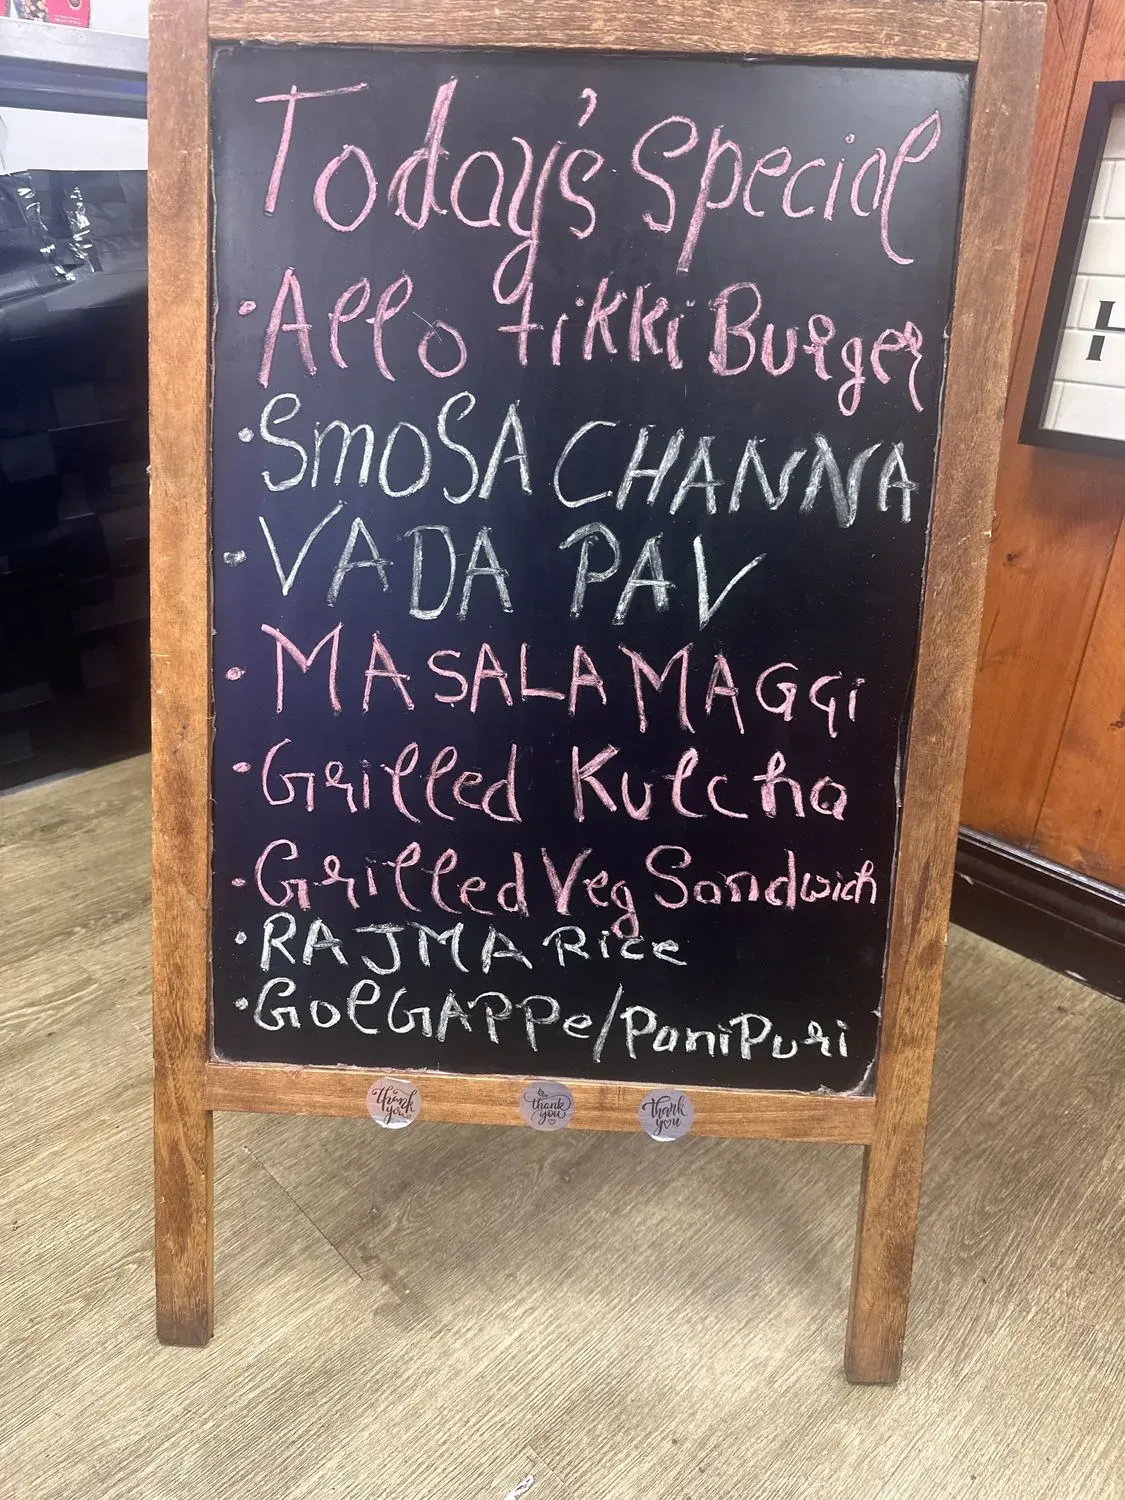 Today's Special
·Allo tikki Burger
·SmOSA CHANNA
·VADA PAV
·MASALA MAGGi
·Grilled Kulcha
·Grilled Veg Sandwich
·RAJMA Rice
·GolGAPPe/PaniPuri
thank you thank you thank you